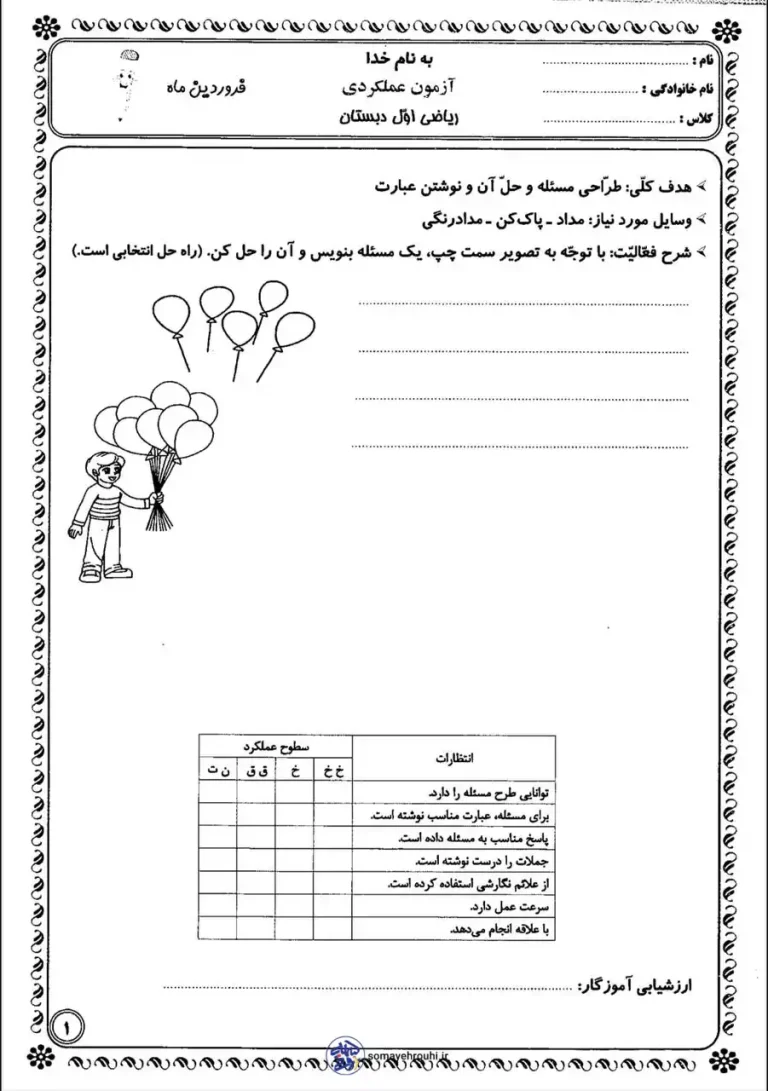 به نام خدا
نام : ........................................
آزمون عملکردی
نام خانوادگی : ..........................
فروردین ماه
کلاس : ....................................
ریاضی اوّل دبستان
هدف کلّی: طرّاحی مسئله و حلّ آن و نوشتن عبارت
وسایل مورد نیاز: مداد ـ پاک‌کن ـ مدادرنگی
شرح فعّالیّت: با توجّه به تصویر سمت چپ، یک مسئله بنویس و آن را حل کن. (راه حل انتخابی است.)
انتظارات
سطوح عملکرد
خ خ
خ
ق ق
ن ت
توانایی طرح مسئله را دارد.
برای مسئله، عبارت مناسب نوشته است.
پاسخ مناسب به مسئله داده است.
جملات را درست نوشته است.
از علائم نگارشی استفاده کرده است.
سرعت عمل دارد.
با علاقه انجام می‌دهد.
ارزشیابی آموزگار: ................................................................
۱
somayehrouhi.ir